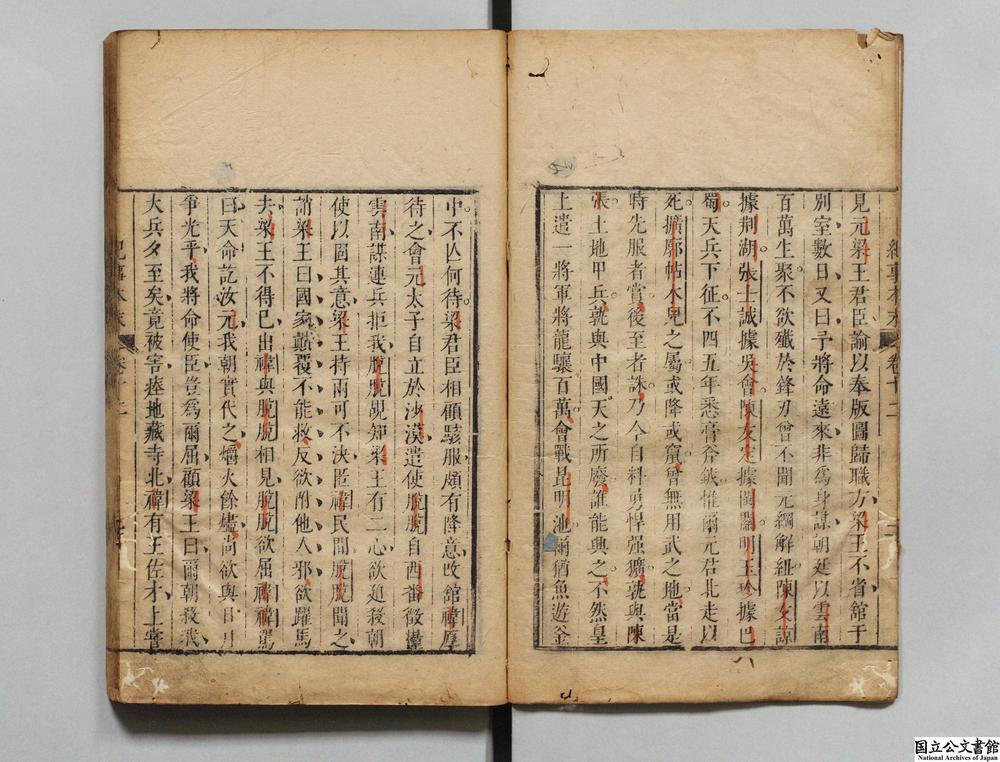 見元梁王君臣諭以奉版圖歸職方梁王不省館于
別室數日又曰予將命遠來非爲身謀朝廷以雲南
百萬生聚不欲殲於鋒刃曾不聞元綱解紐陳友諒
據荆湖張士誠據吳會陳友定據閩關明玉珍據巴
蜀天兵下征不四五年悉膏斧鉞惟爾元君北走以
死擴廓帖木兒之屬或降或竄曾無用武之地當是
時先服者賞後至者誅乃今自料勇悍强獷孰與陳
張土地甲兵孰與中國天之所廢誰能興之不然皇
上遣一將軍將龍驤百萬會戰昆明池爾猶魚遊釜
中不亾何待梁君臣相顧駭服頗有降意改館禕厚
待之會元太子自立於沙漠遣使脫脫自西番徵糧
雲南謀連兵拒我脫脫覘知梁王有二心欲廹殺朝
使以固其意梁王持兩可不決匿禕民間脫脫聞之
誚梁王曰國家顚覆不能救反欲附他人邪欲躍馬
去梁王不得已出禕與脫脫相見脫脫欲屈禕禕罵
曰天命訖汝元我朝實代之爝火餘燼尚欲與日月
爭光乎我將命使臣豈爲爾屈顧梁王曰爾朝殺我
大兵夕至矣竟被害瘞地藏寺北禕有王佐才上嘗
紀事本末 卷十二
紀事本末 卷十二
国立公文書館
National Archives of Japan